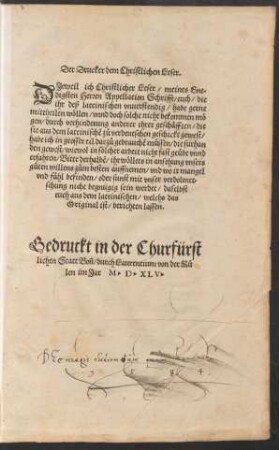 Der Drucker dem Christlichen Leser.
DJeweil ich Christlicher Leser / meines Gne-
digsten Herren Appellation Schrifft / euch / die
ihr deß lateinischen unverstendig / hab gerne
mittheilen wöllen / und doch solche nicht bekommen mö
gen / durch verhinderung anderer ihrer geschäfften / die
sie aus dem lateinischē zů verdeutschen geschickt gewest /
habe ich in grosser eil darzů gebrauchē müssen / die fürhan
den gewest / wiewol in solcher arbeit nicht fast geübt und
erfahren / Bitte derhalbē / ihr wöllets in ansehung unsers
gůten willens zům besten auffnemen / und wo ir mangel
und fähl befinden / oder sunst mit unser verdolmet-
schung nicht benügig sein werdet / daselbst
euch aus dem lateinischen / welchs das
Original ist / berichten lassen.
Gedruckt in der Churfürst
lichen Statt Boñ / durch Laurentium von der Mü
len im Jar M. D. XLV.